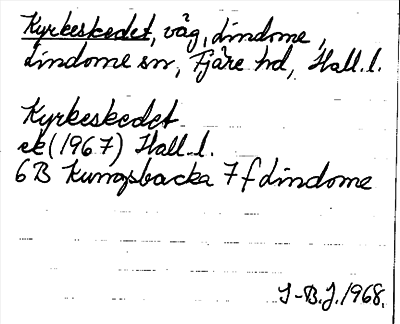 Kyrkeskedet, väg, Lindome,
Lindome sn, Fjäre hd, Hall.l.
Kyrkeskedet
ek (1967) Hall.l.
6B Kungsbacka 7f Lindome
I-B.J. 1968.